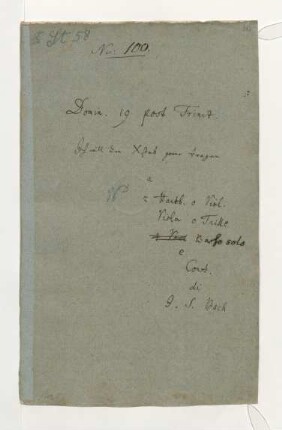 S St 58
No: 100.
Domin. 19 post Trinit.
Ich will den Xstab gern tragen
a
2 Hautb. 2 Viol.
Viola e Taille
Basso solo
e
Cont.
di
J. S. Bach